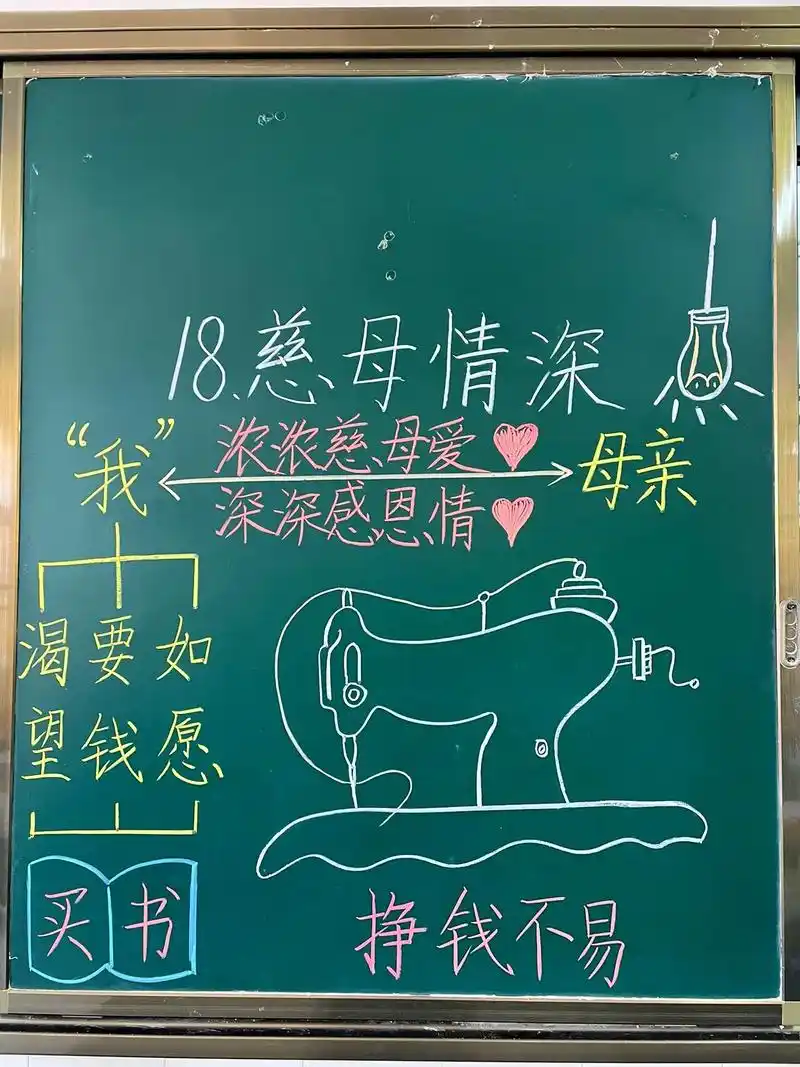 18.慈母情深
浓浓慈母爱
“我” 母亲
深深感恩情
渴望 要钱 如愿
买书
挣钱不易